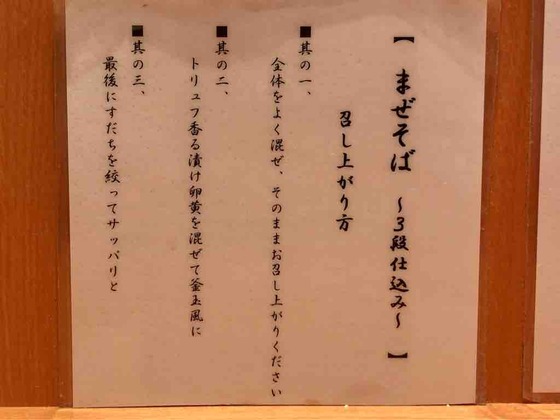 【 まぜそば ～3段仕込み～ 】
召し上がり方
■ 其の一、
全体をよく混ぜ、そのままお召し上がりください
■ 其の二、
トリュフ香る漬け卵黄を混ぜて釜玉風に
■ 其の三、
最後にすだちを絞ってサッパリと